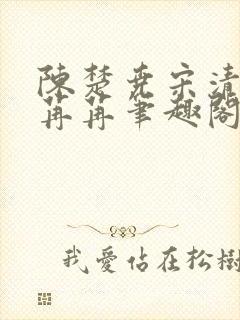 陳楚堯宋清
苒苒筆趣閣
我愛佔在松樹